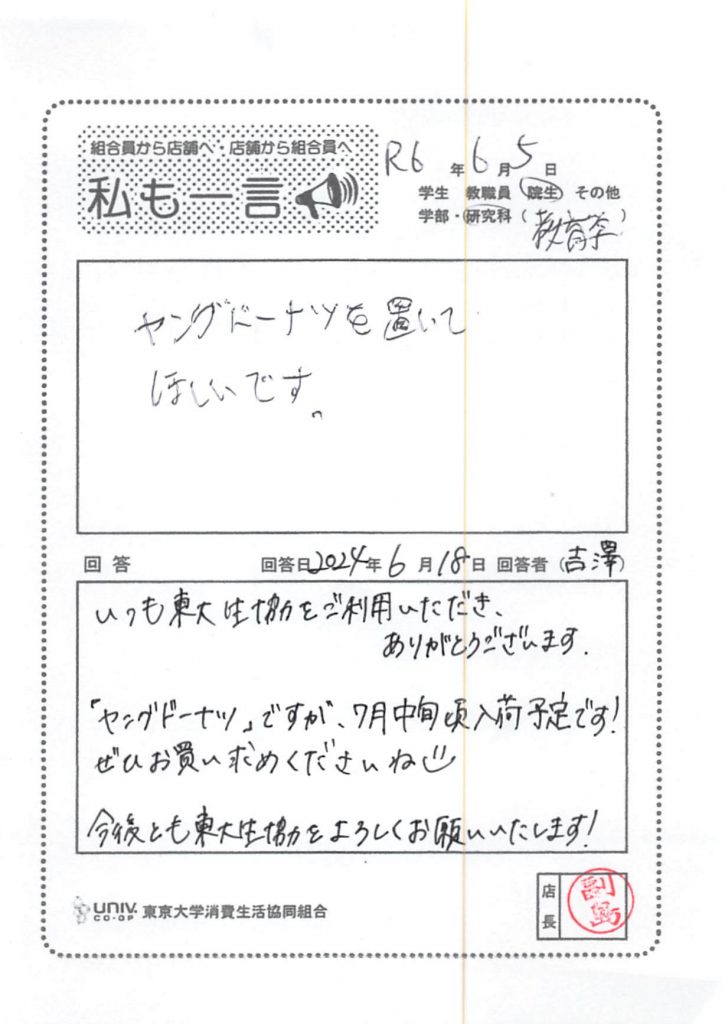 組合員から店舗へ・店舗から組合員へ
私も一言
R6年6月5日
学生 教職員 院生 その他
学部・研究科（教育学）
ヤングドーナツを置いて
ほしいです。
回答 回答日2024年6月18日 回答者（吉澤）
いつも東大生協をご利用いただき、
ありがとうございます.
「ヤングドーナツ」ですが、7月中旬頃入荷予定です!
ぜひお買い求めくださいね
今後とも東大生協をよろしくお願いいたします!
UNIV.
CO-OP
東京大学消費生活協同組合
店長
副島